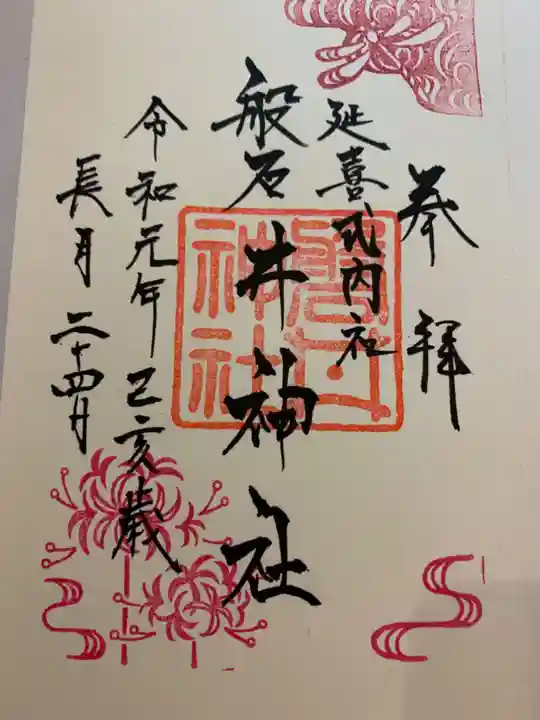 奉拝
延喜式内社
磐井神社
令和元年己亥歳
長月二十四日